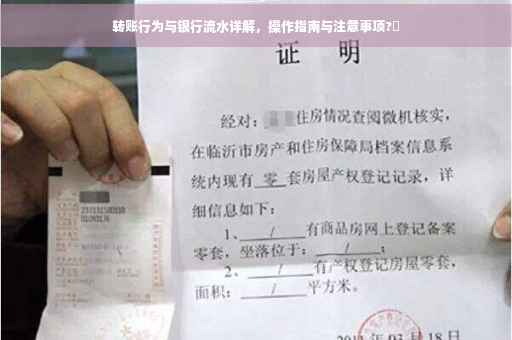 转账行为与银行流水详解，操作指南与注意事项?
证 明
经对：住房情况查阅微机核实，
在临沂市房产和住房保障局档案信息系
统内现有 零 套房屋产权登记记录，详
细信息如下：
1、 / 有商品房网上登记备案
零套，坐落位于： / ；
2、 / 有产权登记房屋零套，
面积： / 平方米。